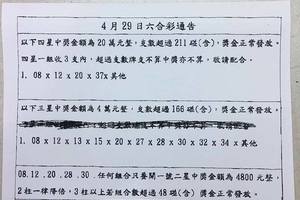 4月29日六合彩通告
以下四星中獎金額為20萬元整,支數超過211碰(含),獎金正常發放。
四星一組收3支內,超過支數牌支不算中獎亦不算,敬請配合。
1. 08 x 12 x 20 x 37x 其他
以下三星中獎金額為4萬元整,支數超過166碰(含),獎金正常發放。
1. 08 x 12 x 13 x 15 x 20 x 27 x 28 x 30 x 32 x 34 x 其他
08.12.20.28.30.任何組合只要開一號二星中獎金額為4800元整,
2柱一律降倍,3柱以上若組合數超過48碰(含)獎金正常發放。